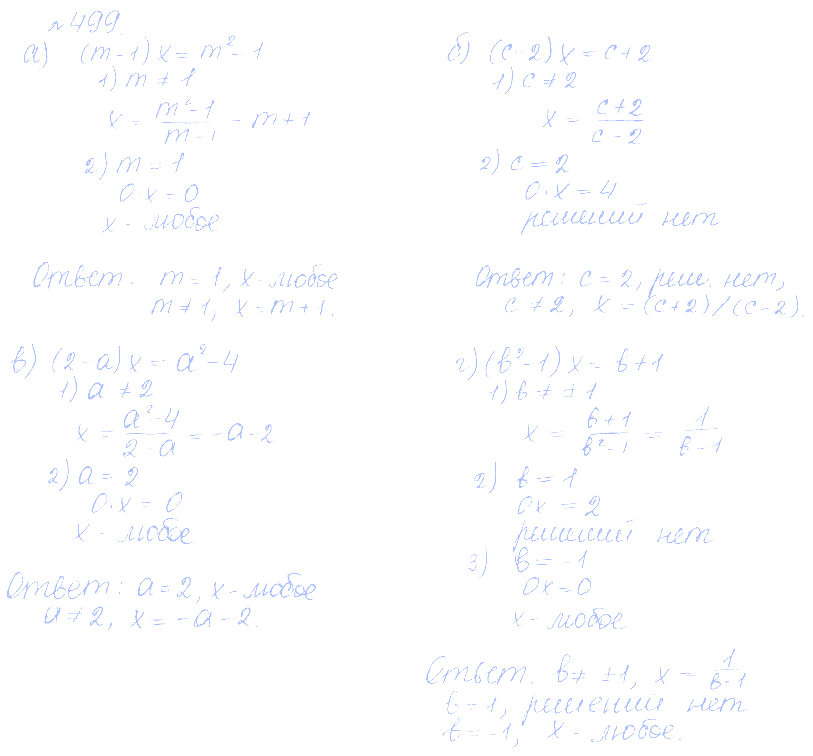 №499.
а) (m-1)x = m²-1
1) m ≠ 1
x = (m²-1)/(m-1) = m+1
2) m = 1
0·x = 0
x - любое
Ответ. m = 1, x - любое
m ≠ 1, x = m+1.
б) (c-2)x = c+2
1) c ≠ 2
x = (c+2)/(c-2)
2) c = 2
0·x = 4
решений нет
Ответ: c = 2, реш. нет,
c ≠ 2, x = (c+2)/(c-2).
в) (2-a)x = a²-4
1) a ≠ 2
x = (a²-4)/(2-a) = -a-2
2) a = 2
0·x = 0
x - любое
Ответ: a = 2, x - любое
a ≠ 2, x = -a-2.
г) (в²-1)x = в+1
1) в ≠ ±1
x = (в+1)/(в²-1) = 1/(в-1)
2) в = 1
0x = 2
решений нет
3) в = -1
0x = 0
x - любое
Ответ. в ≠ ±1, x = 1/(в-1)
в = 1, решений нет
в = -1, x - любое.